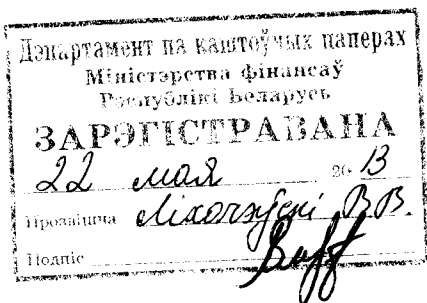 Дэпартамент па каштоўных паперах
Міністэрства фінансаў
Рэспублікі Беларусь
ЗАРЭГІСТРАВАНА
22 мая 2013
Прозвішча В.В.
Подпіс